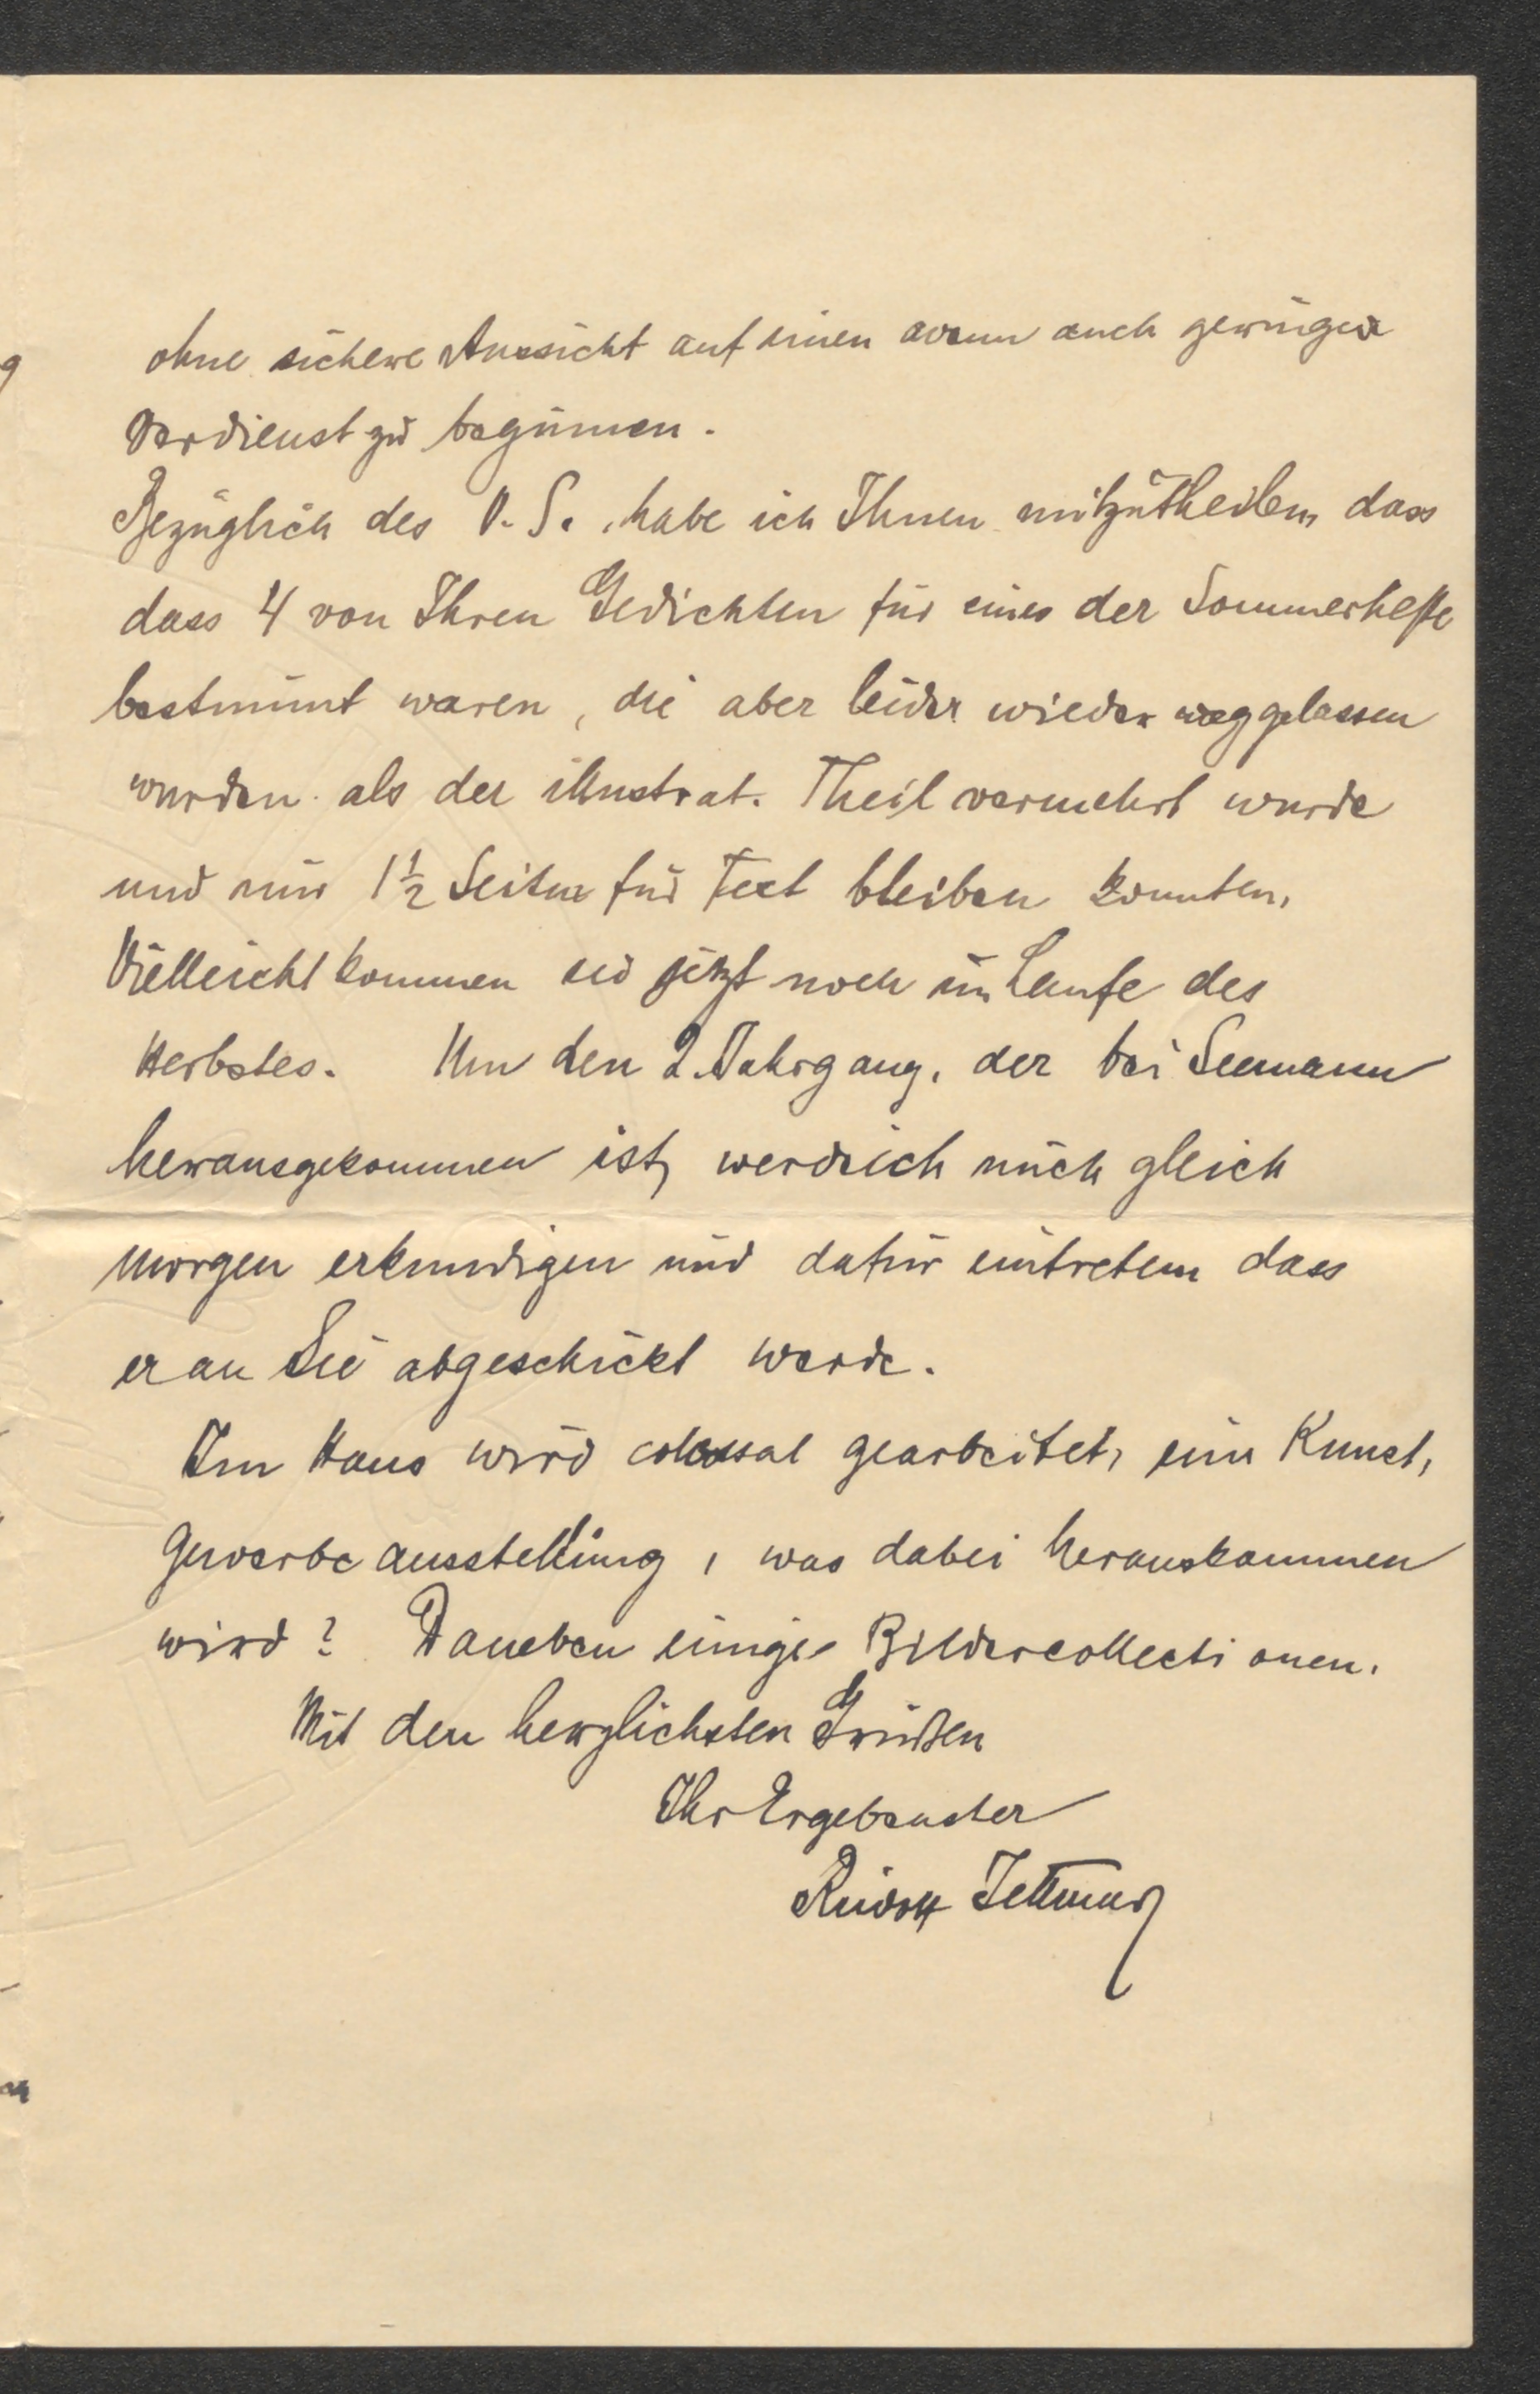 ohne sichere Aussicht auf einen wenn auch geringen
Verdienst zu beginnen.
Bezüglich des V. S. habe ich Ihnen mitzutheilen, dass
dass 4 von Ihren Gedichten für eines der Sommerhefte
bestimmt waren, die aber leider wieder weggelassen
wurden als der illustrat. Theil vermehrt wurde
und nur 1½ Seiten für Text bleiben konnten.
Vielleicht kommen sie jetzt noch im Laufe des
Herbstes. Um den 2. Jahrgang, der bei Seemann
herausgekommen ist, werde ich mich gleich
morgen erkundigen und dafür eintreten dass
er an Sie abgeschickt werde.
Im Haus wird colossal gearbeitet, eine Kunst,
gewerbeausstellung, was dabei herauskommen
wird? Daneben einige Bildercollectionen.
Mit den herzlichsten Grüßen
Ihr Ergebenster
Rudolf Jettmar